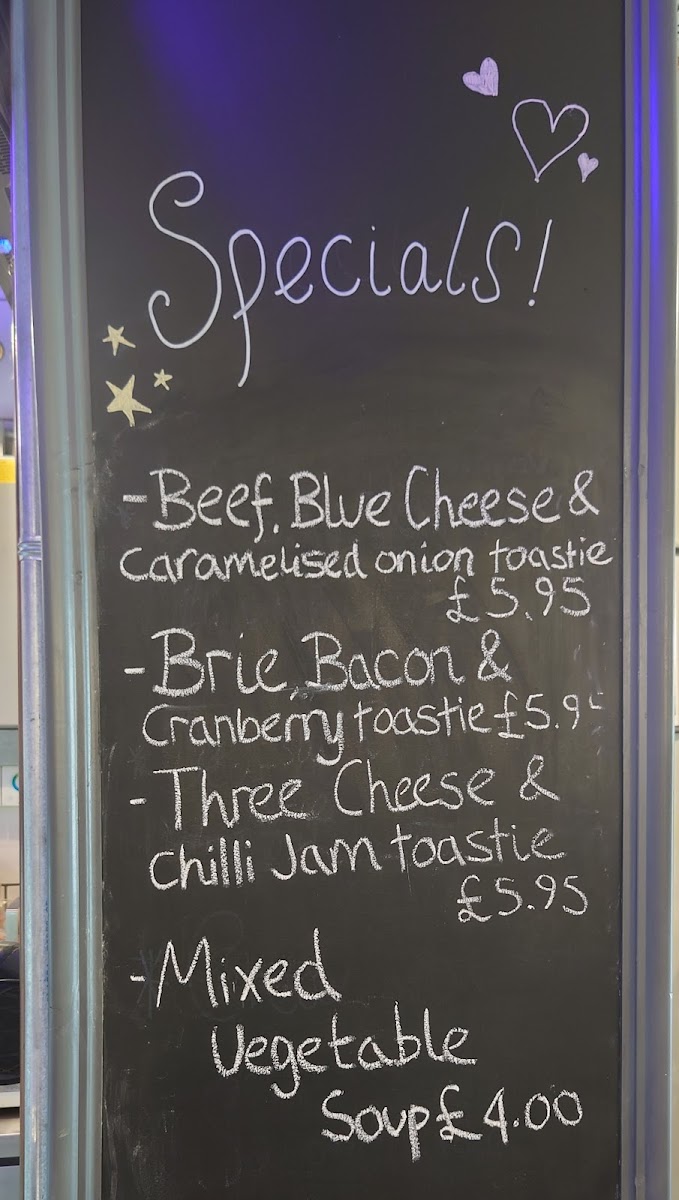 Specials!
-Beef, Blue Cheese &
caramelised onion toastie
£5.95
-Brie, Bacon &
Cranberry toastie
-Three Cheese &
chilli Jam toastie
£5.95
-Mixed
Vegetable
Soup £4.00